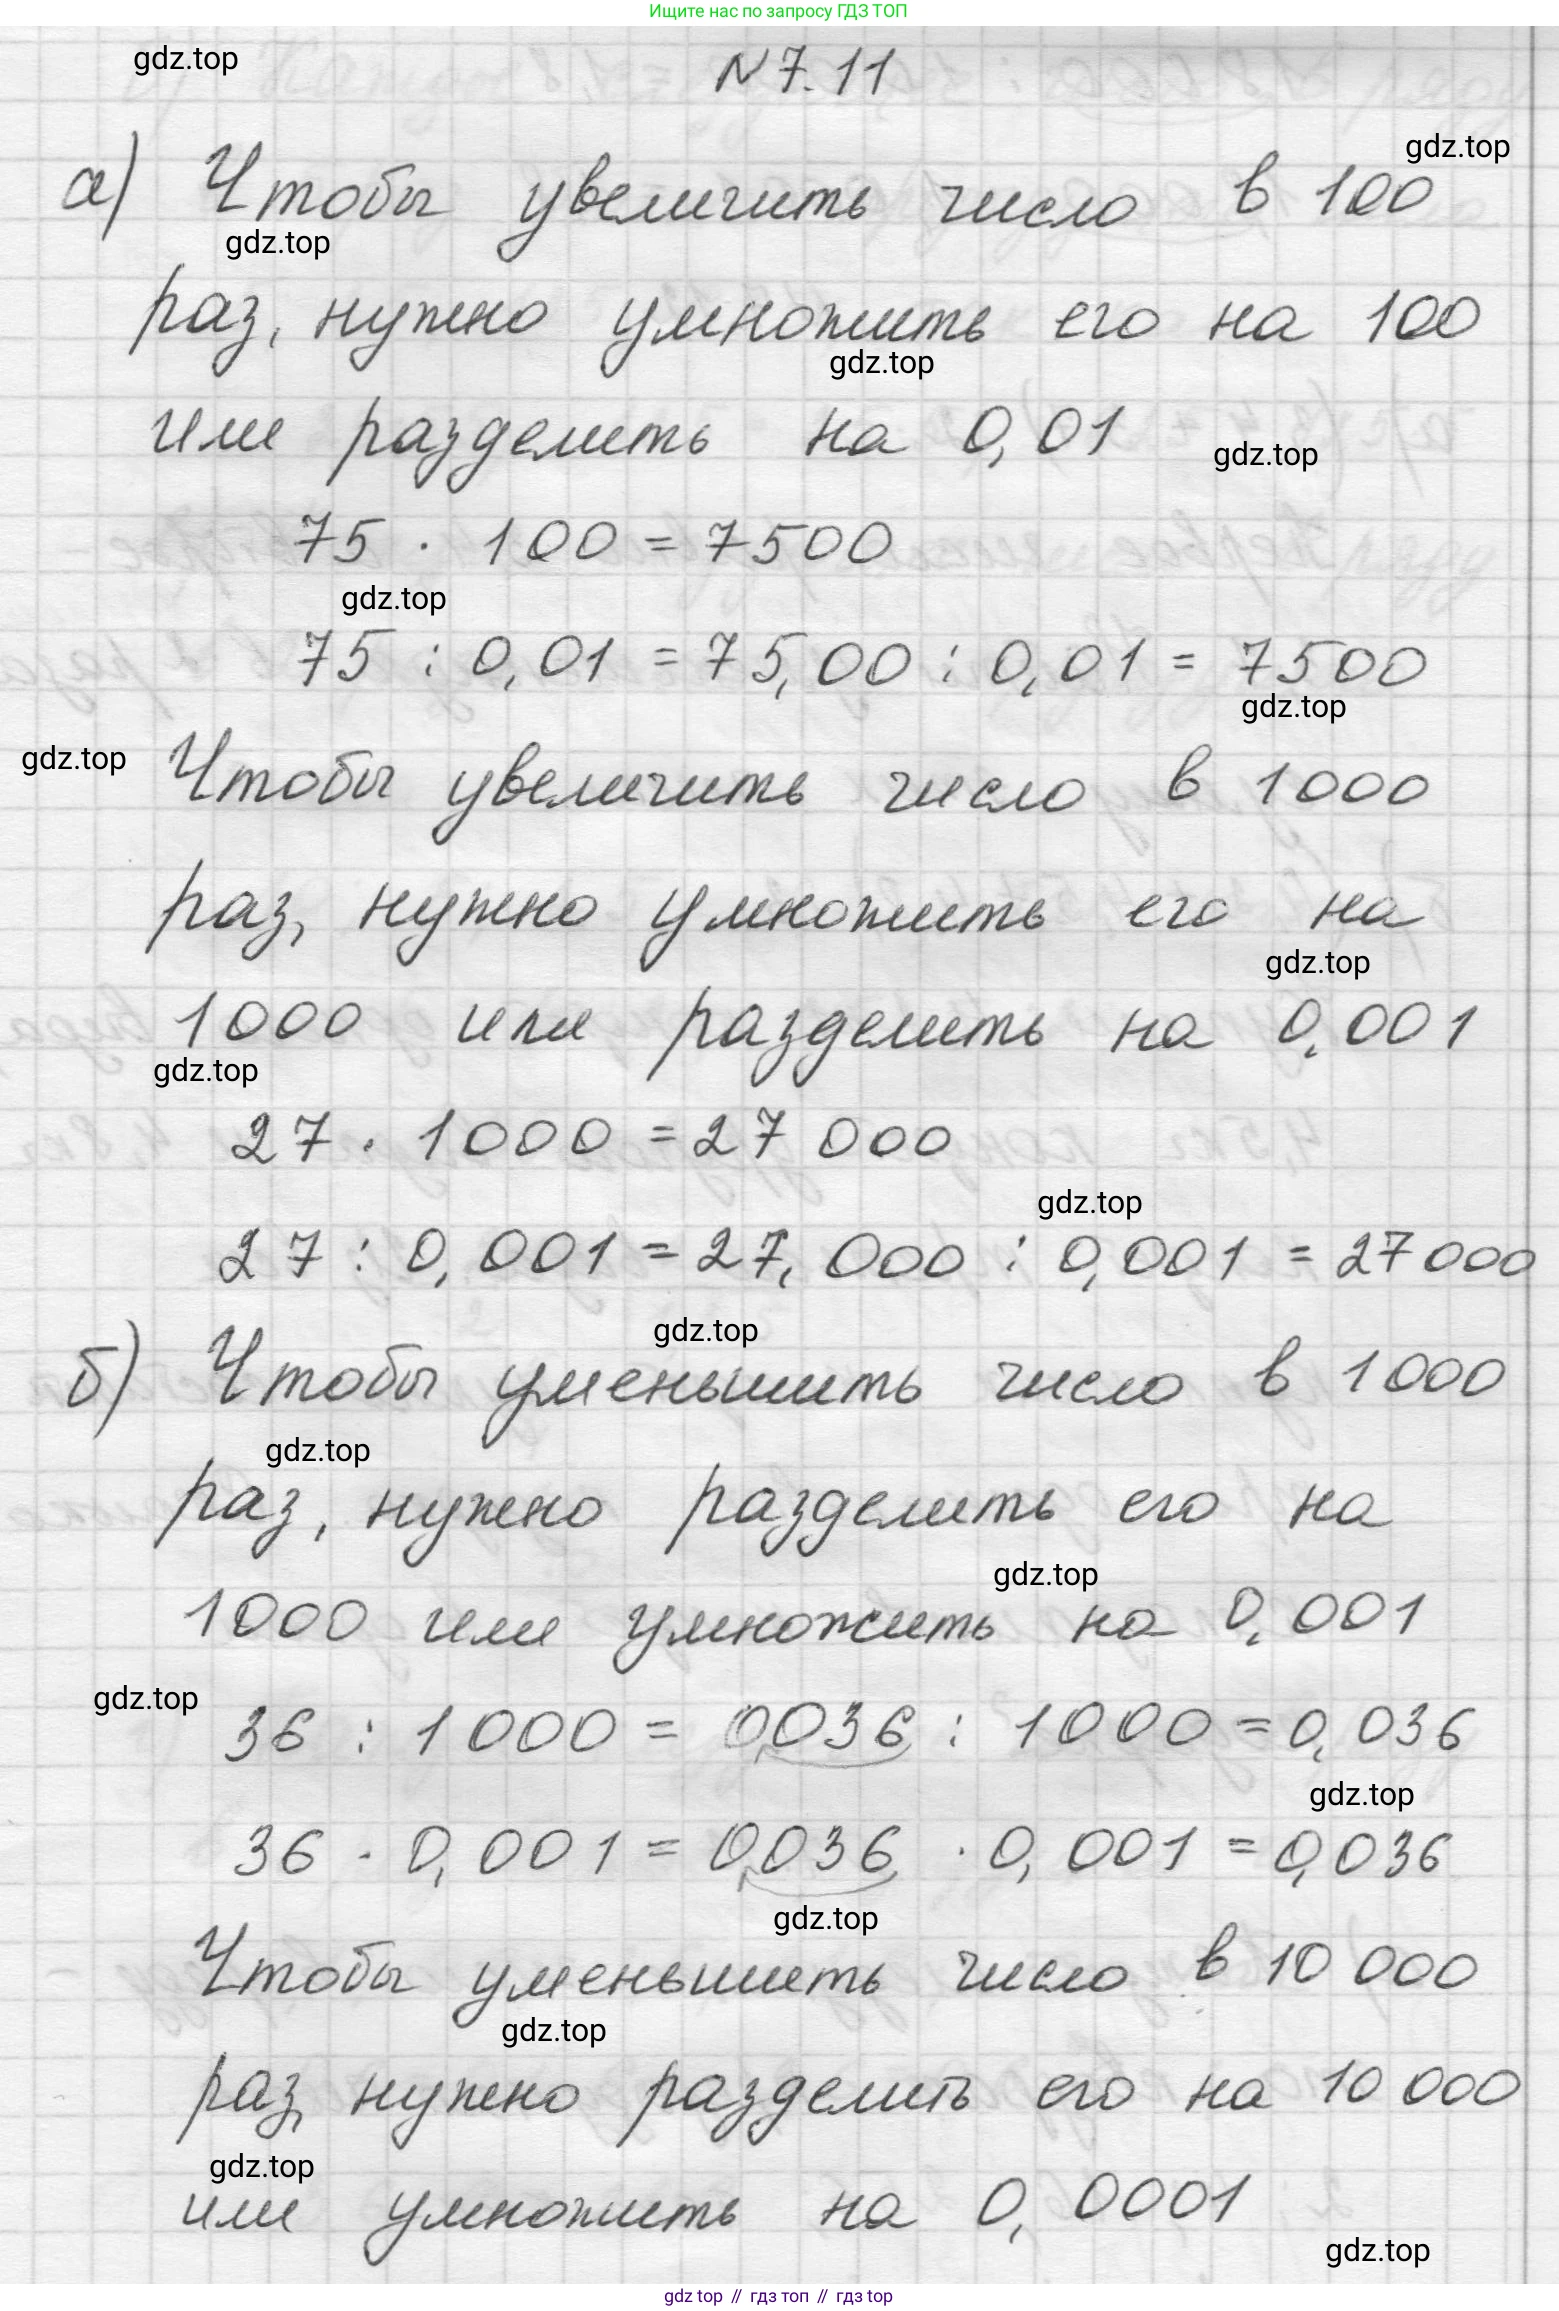 Ищите нас по запросу ГДЗ ТОП
gdz.top
N 7.11
gdz.top
а) Чтобы увеличить число в 100
gdz.top
раз, нужно умножить его на 100
gdz.top
или разделить на 0,01
gdz.top
75 · 100 = 7500
gdz.top
75 : 0,01 = 75,00 : 0,01 = 7500
gdz.top
gdz.top
Чтобы увеличить число в 1000
раз, нужно умножить его на
gdz.top
1000 или разделить на 0,001
gdz.top
27 · 1000 = 27 000
gdz.top
27 : 0,001 = 27,000 : 0,001 = 27000
gdz.top
б) Чтобы уменьшить число в 1000
gdz.top
раз, нужно разделить его на
gdz.top
1000 или умножить на 0,001
gdz.top
36 : 1000 = 0,036, : 1000 = 0,036
gdz.top
36 · 0,001 = 0,036, · 0,001 = 0,036
gdz.top
Чтобы уменьшить число в 10 000
gdz.top
раз, нужно разделить его на 10 000
gdz.top
или умножить на 0,0001
gdz.top
gdz top // гдз топ // гдз top